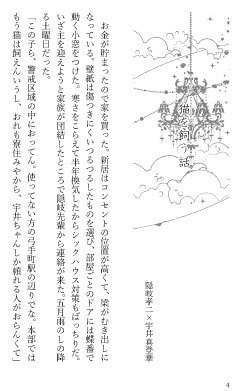 猫を飼う話
隠岐孝二×宇井真登華
お金が貯まったので家を買った。新居はコンセントの位置が高くて、梁がむき出しに
なっている。壁紙は傷つきにくいつるつるしたものを選び、部屋ごとのドアには蝶番で
動く小窓をつけた。寒さをこらえて半年換気したからシックハウス対策もばっちりだ。
いざ主を迎えようと家族が団結したところで隠岐先輩から連絡が来た。五月雨のしの降
る土曜日だった。
「この子ら、警戒区域の中におってん。使ってない方の弓手町駅の辺りでな。本部では
もう猫は飼えんいうし、おれも寮住みやから、宇井ちゃんしか頼れる人がおらんくて」
4